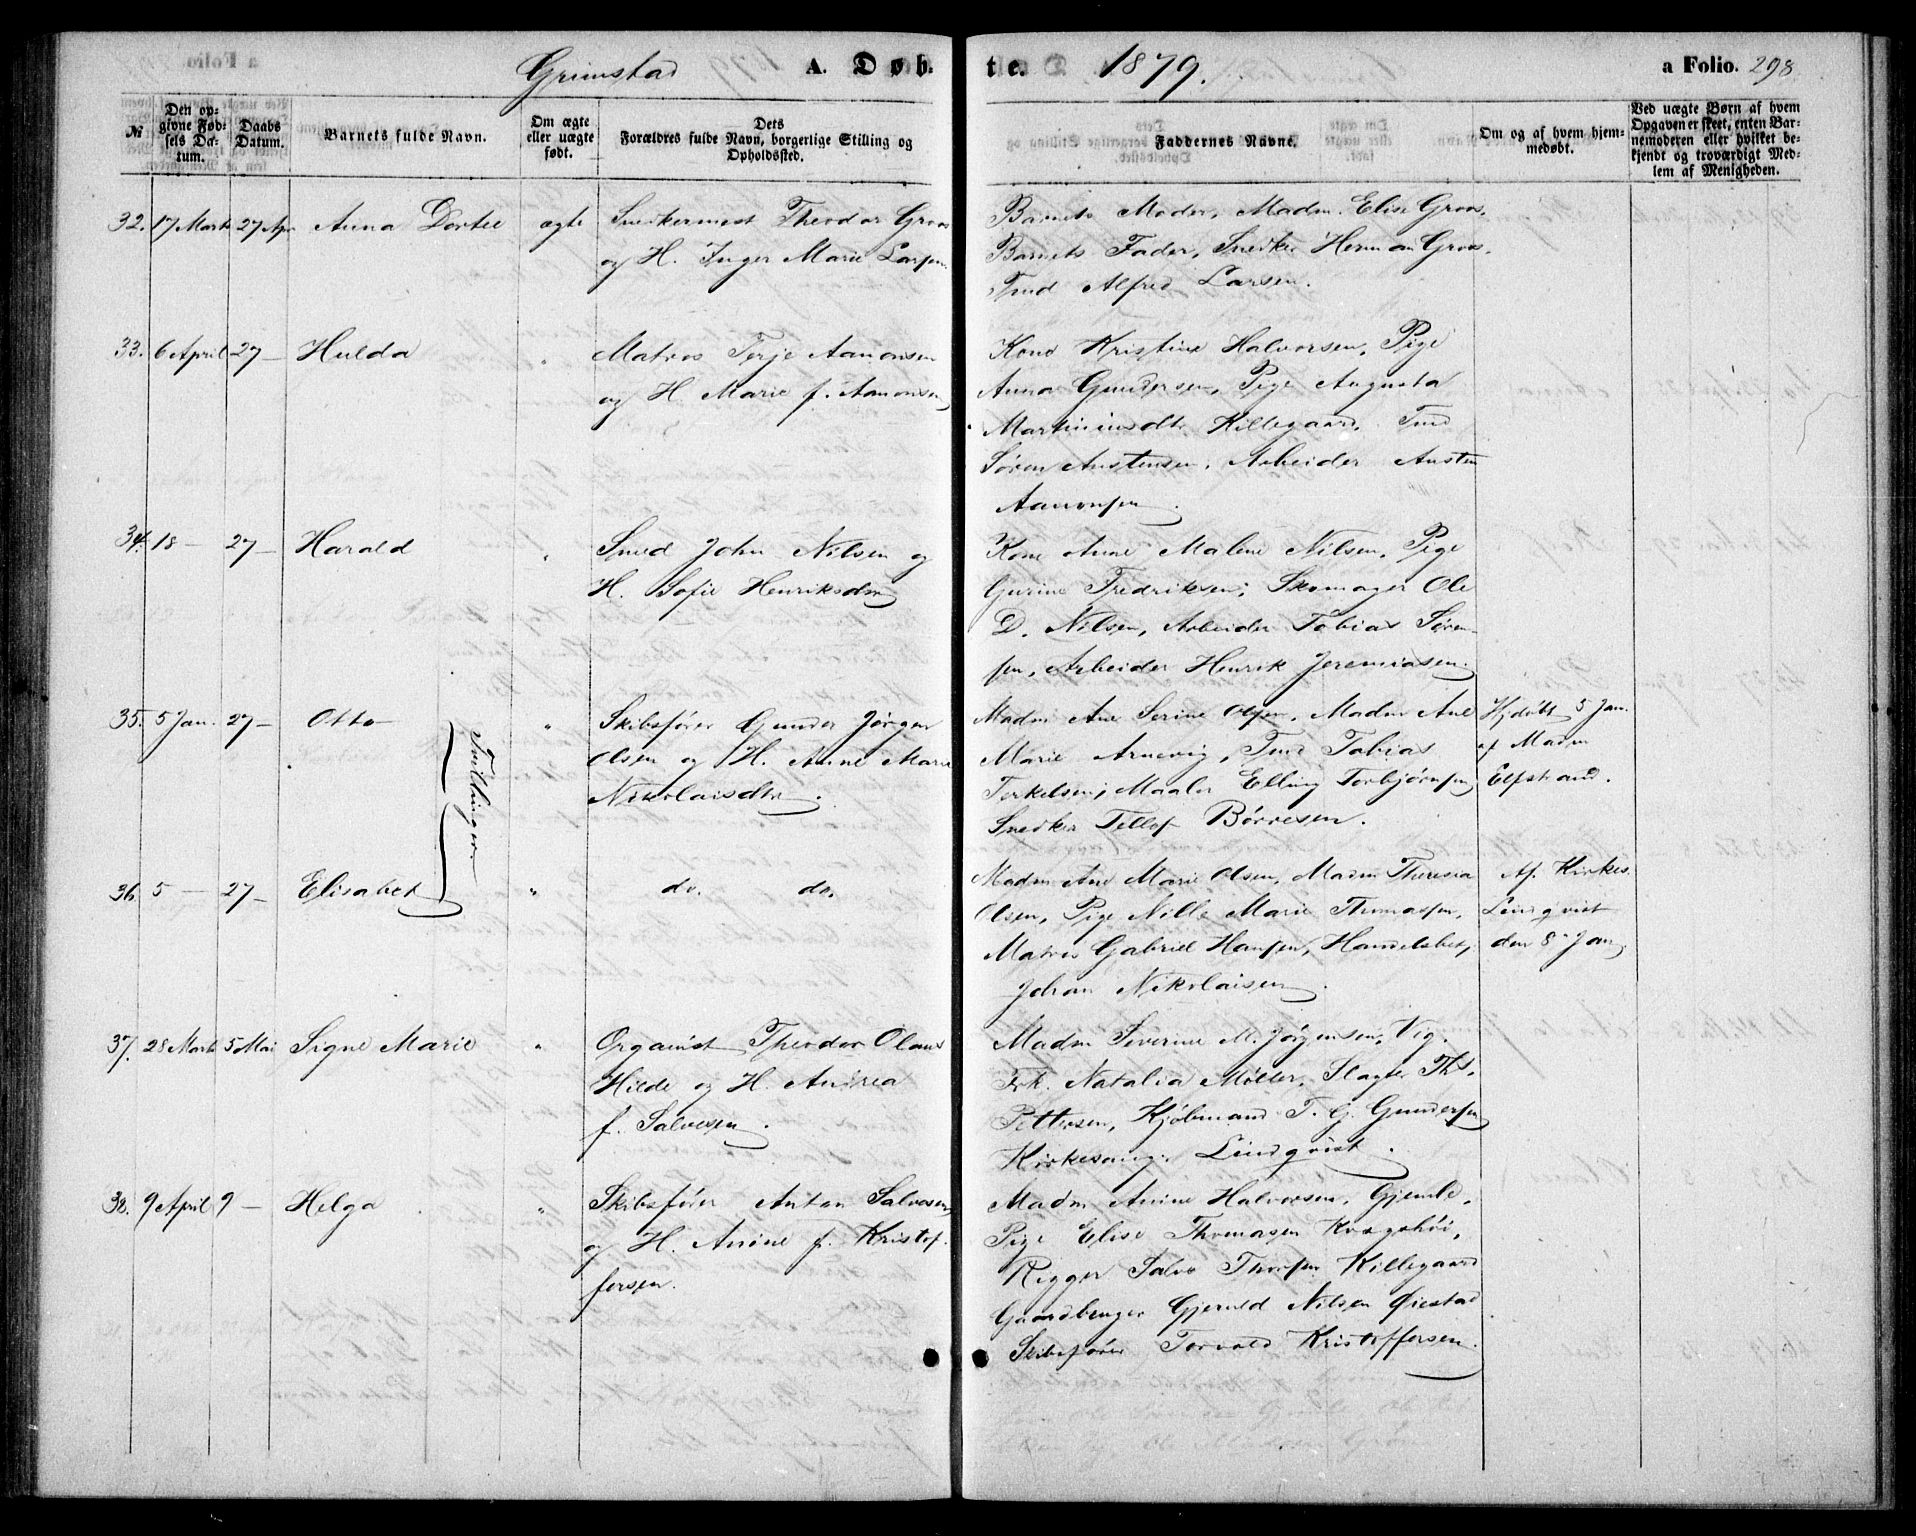 Grimstad A. Døb- te. 1879. a Folio. 298
№
Den op-
givne Fød-
sels Da-
tum.
Daabs
Datum.
Barnets fulde Navn.
Om ægte
eller uægte
født.
Dets
Forældres fulde Navn, borgerlige Stilling og
Opholdssted.
Faddernes Navne.
Om og af hvem hjem-
medøbt.
Ved uægte Børn af hvem
Opgaven er skeet, enten Bar-
nemoderen eller hvilket be-
kjendt og troværdigt Med-
lem af Menigheden.
32. 17 Marts 27 Apr Anna Dortee ægte Snedkermest Theodor Groos
og H. Inger Marie Larsen
Barnets Moder, Madm. Elise Groos,
Barnets Fader, Snedker Herman Groos,
Smed Alfred Larsen.
33. 6 April 27 — Hulda " Matros Terje Aanonsen
og H Marie f. Aanonsen
Kone Kristine Halvorsen, Pige
Anna Gundersen, Pige Augusta
Martiniusdtr Killegaard, Smed
Søren Austensen, Arbeider Austen
Aanonsen.
34. 18 — 27 — Harald " Smed John Nilsen og
H. Sofie Henriksdtr
Kone Anne Malene Nilsen, Pige
Gurine Fredriksen, Skomager Ole
D. Nilsen, Arbeider Tobias Søren-
sen, Arbeider Henrik Jeremiasen.
35. 5 Jan. 27 — Otto " Skibsfører Gunder Jørgen
Olsen og H. Anne Marie
Nikolaisdtr.
Tvillinger
Madm Ane Serine Olsen, Madm Ane
Marie Arnevig, Smed Tobias
Terkelsen, Maaler Elling Torbjørnsen
Snedker Tellef Børresen.
Hjdøbt 5 Jan.
af Madm
Elfstrand.
36. 5 — 27 — Elisabet " do. do.
Madm Ane Marie Olsen, Madm Theresia
Olsen, Pige Nille Marie Thomassen,
Matros Gabriel Hansen, Handelsbet.
Johan Nikolaisen.
Af Kirkes.
Lindqvist
den 8 Jan.
37. 28 Marts 5 Mai Signe Marie " Organist Theodor Olaus
Hilde og H. Andrea
f. Salvesen.
Madm Severine M. Jørgensen, Vig.
Frk. Natalia Møller, Slagter Ths.
Pettersen, Kjøbmand T. G. Gundersen
Kirkesang. Lindqvist.
38. 9 April 9 — Helga " Skibsfører Anton Salvesen
og H. Anine f. Kristof-
fersen.
Madm Anine Halvorsen, Gjemle,
Pige Elise Thomasen Kragshøi,
Rigger Salve Thorsen Killegaard
Gaardbruger Gjeruld Nilsen Øiestad
Skibsfører Torvald Kristoffersen.